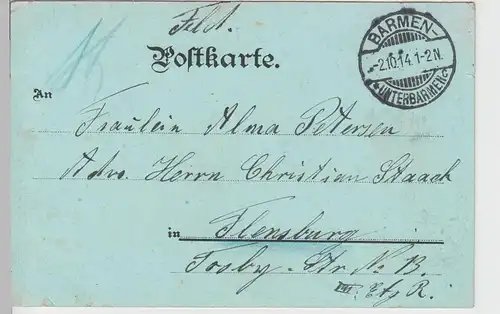 Feld.
Postkarte.
BARMEN-
-2.10.14.1-2N.
UNTERBARMEN
An
Fräulein Alma Petersen
Adr. Herrn Christian Staack
in Flensburg
Tosby-Str. No 13.
III. Etg R.